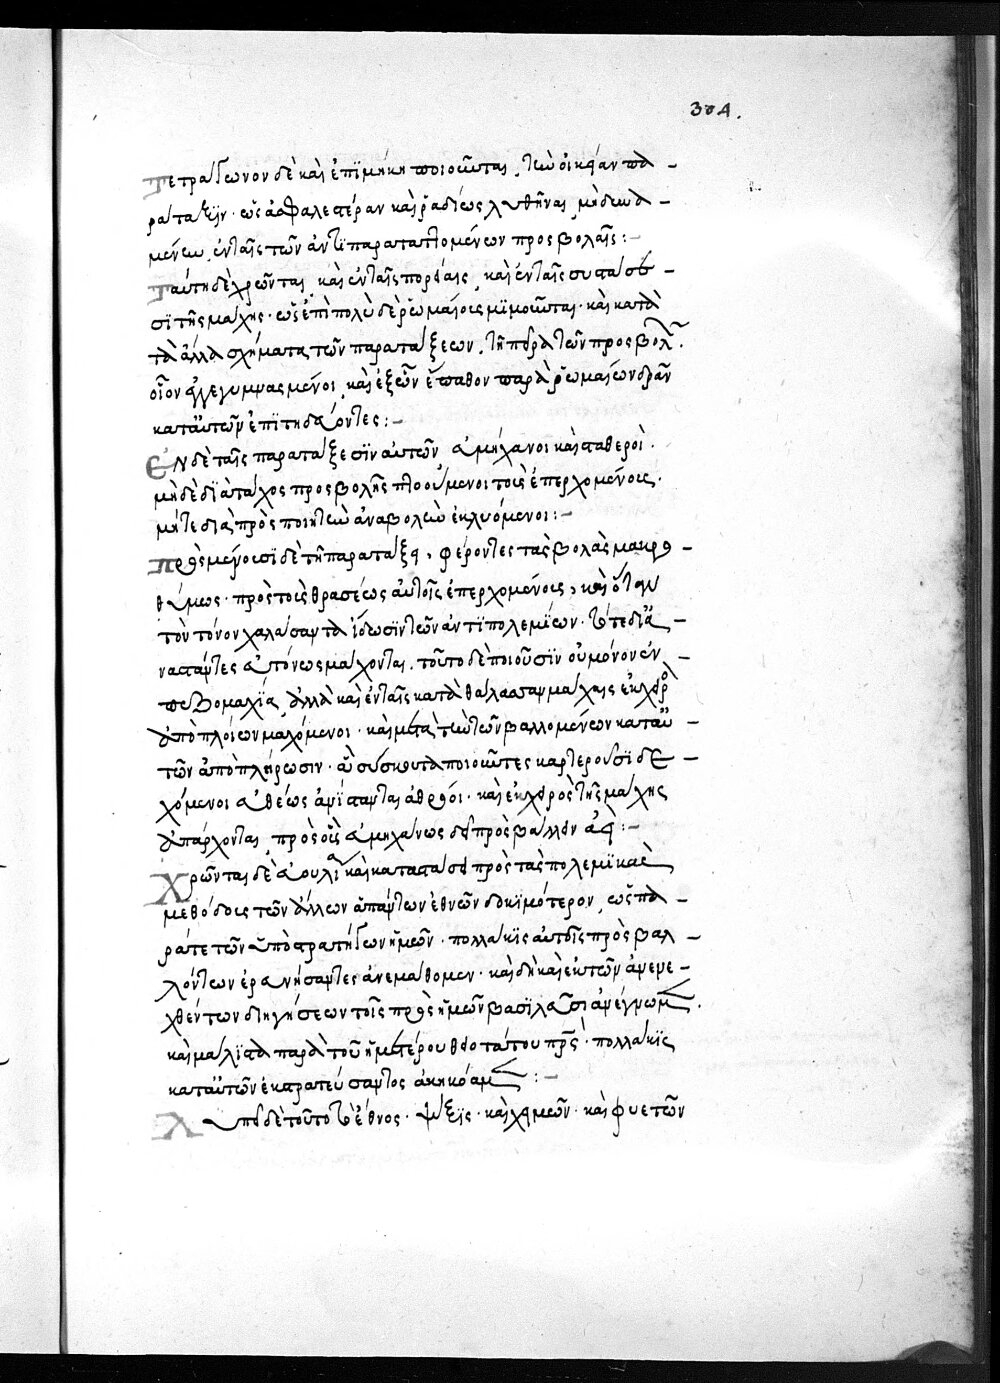 304.
Τετράγωνον δὲ καὶ ἐπιμήκη ποιοῦνται τὴν οἰκείαν πα
ράταξιν· ὡς ἀσφαλεστέραν καὶ ῥαδίως λυθῆναι μὴ δυνα
μένην ἐν ταῖς τῶν ἀντιπαραταττομένων προσβολαῖς:–
Ταύτῃ δὲ χρῶνται καὶ ἐν ταῖς πορείαις, καὶ ἐν ταῖς συστάσε
σι τῆς μάχης· ὡς ἐπιπολὺ δὲ ῥωμαίοις μιμοῦνται· καὶ κατὰ
τὰ ἄλλα σχήματα τῶν παρατάξεων, τῇ πείρᾳ τῶν προσβολῶν·
οἷον γεγυμνασμένοι, καὶ ἐξ ὧν ἔπαθον παρὰ ῥωμαίων
κατ' αὐτῶν ἐπιτηδεύοντες:–
Ἐν δὲ ταῖς παρατάξεσιν αὐτῶν ἀμήχανοι καὶ σταθεροί·
μηδὲ διὰ τάχος προσβολῆς πτοούμενοι τοῖς ἐπερχομένοις·
μήτε διὰ προσποιητὴν ἀναβολὴν ἐκλυόμενοι:–
Προσμένουσι δὲ τῇ παρατάξει, φέροντες τὰς βολὰς μακρο
θύμως· πρὸς τοὺς θρασέως αὐτοῖς ἐπερχομένοις, καὶ ὅταν
τὸν τόνον χαλάσαντα ἴδωσιν τῶν ἀντιπολεμίων· τότε δια
ναστάντες εὐτόνως μάχονται· τοῦτο δὲ ποιοῦσιν οὐ μόνον ἐν
πεζομαχία, ἀλλὰ καὶ ἐν ταῖς κατὰ θάλασσαν μάχαις ἐκ χειρὸς
ἀπὸ πλοίων μαχόμενοι· καὶ μετὰ τὴν τῶν βαλλομένων κατ' αὐ
τῶν ἀποπλήρωσιν· ἃ σύσκουτα ποιοῦντες καρτεροῦσι δε
χόμενοι εὐθέως ἀνίστανται ἀθρόοι· καὶ ἐκ χειρὸς τῆς μάχης
ἀπάρχονται, πρὸς οὓς
Χρῶνται δὲ βουλῇ καὶ καταστάσει πρὸς τὰς πολεμικὰς
μεθόδους τῶν ἄλλων ἁπάντων ἐθνῶν δοκιμότερον, ὡς πα
ρά τε τῶν ὑποστρατήγων ἡμῶν· πολλάκις αὐτοῖς προσβαλ
λόντων ἐρευνήσαντες ἀνεμάθομεν· καὶ δὴ καὶ ἐκ τῶν ἀνενε
χθέντων διηγήσεων τοῖς πρὸ ἡμῶν βασιλεῦσι ἀνέγνωμεν·
καὶ μάλιστα παρὰ τοῦ ἡμετέρου θειοτάτου πατρός· πολλάκις
κατ' αὐτῶν ἐκστρατεύσαντος ἀκηκόαμεν:–
Λυπεῖ δὲ τοῦτο τὸ ἔθνος· ψῦξις· καὶ χειμών· καὶ ἡ τῶν